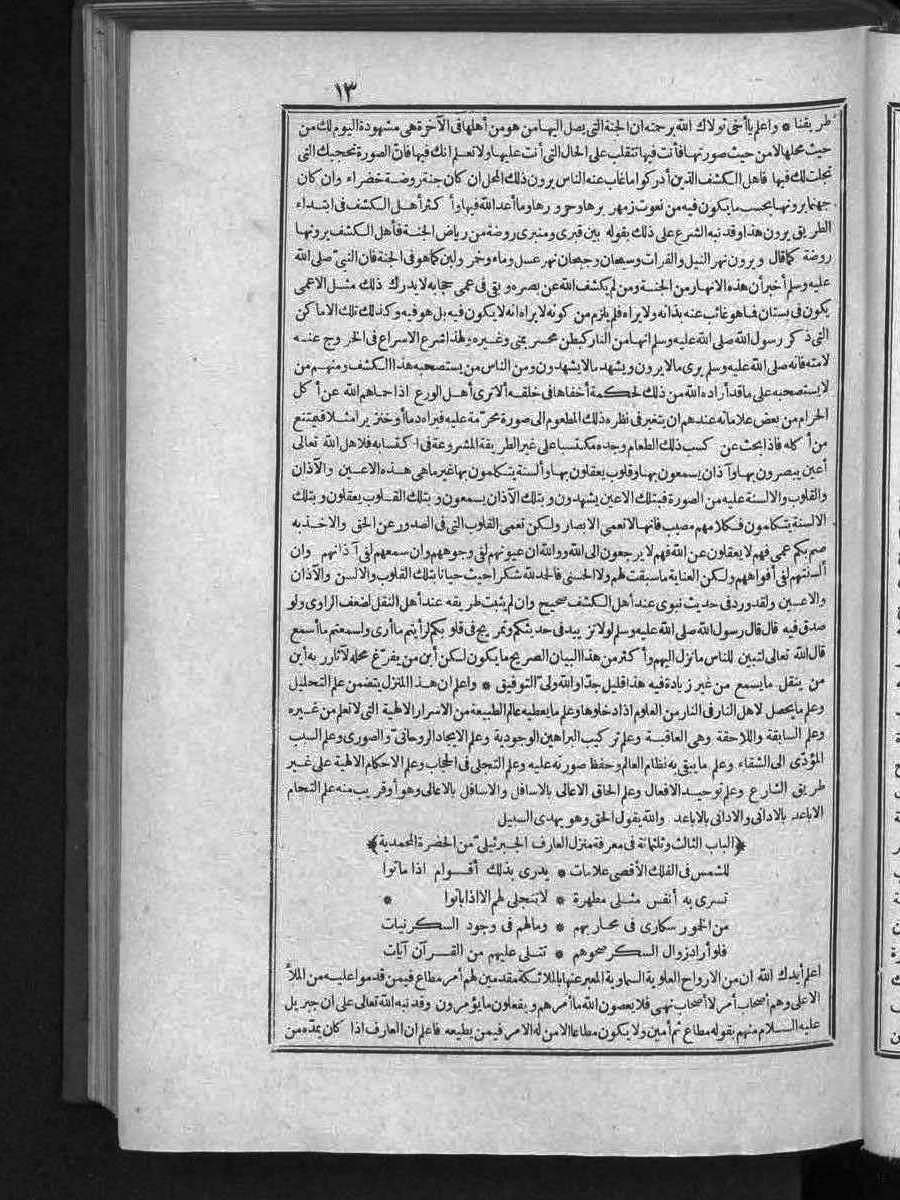 ١٣
طريقنا * واعلم يا أخى تولاك الله برحمته ان الجنة التى يصل اليها من هو من أهلها فى الآخرة هى مشهودة اليوم لك من
حيث محلها لا من حيث صورتها فأنت فيها تتقلب على الحال التى أنت عليها ولا تعلم انك فيها فان الصورة تحجبك التى
تجلت لك فيها فأهل الكشف الذين أدركوا ما غاب عنه الناس يرون ذلك المحل ان كان جنة روضة خضراء وان كان
جهنما يرونها بحسب ما يكون فيه من نعوت زمهريرها وحرورها وما أعد الله فيها وأكثر أهل الكشف فى ابتداء
الطريق يرون هذا وقد نبه الشرع على ذلك بقوله بين قبرى ومنبرى روضة من رياض الجنة فأهل الكشف يرونها
روضة كما قال ويرون نهر النيل والفرات وسيحان وجيحان نهر عسل وماء وخمر ولبن كما هو فى الجنة فان النبى صلى الله
عليه وسلم أخبر أن هذه الانهار من الجنة ومن لم يكشف الله عن بصره وبقى فى عمى حجابه لا يدرك ذلك مثل الاعمى
يكون فى بستان فما هو غائب عنه بذاته ولا يراه فلم يلزم من كونه لا يراه انه لا يكون فيه بل هو فيه وكذلك تلك الاماكن
التى ذكر رسول الله صلى الله عليه وسلم انها من النار كبطن محسر بمنى وغيره ولهذا شرع الاسراع فى الخروج عنه
لامته فانه صلى الله عليه وسلم يرى ما لا يرون ويشهد ما لا يشهدون ومن الناس من يستصحبه هذا الكشف ومنهم من
لا يستصحبه على ما قد أراده الله من ذلك لحكمة أخفاها فى خلقه ألا ترى أهل الورع اذا حماهم الله عن أكل
الحرام من بعض علاماته عندهم ان يتغير فى نظره ذلك المطعوم الى صورة محرمة عليه فيراه دما أو خنزيرا مثلا فيمتنع
من أكله فاذا بحث عن كسب ذلك الطعام وجده مكتسبا على غير الطريقة المشروعة فى اكتسابه فلاهل الله تعالى
أعين يبصرون بها وآذان يسمعون بها وقلوب يعقلون بها وألسنة يتكلمون بها غير ما هى هذه الاعين والآذان
والقلوب والالسنة عليه من الصورة فبتلك الاعين يشهدون وبتلك الآذان يسمعون وبتلك القلوب يعقلون وبتلك
الالسنة يتكلمون فكلامهم مصيب فانها لا تعمى الابصار ولكن تعمى القلوب التى فى الصدور عن الحق والاخذ به
صم بكم عمى فهم لا يعقلون عن الله فهم لا يرجعون الى الله ووالله ان عيونهم لفى وجوههم وان سمعهم لفى آذانهم وان
ألسنتهم لفى أفواههم ولكن العناية ما سبقت لهم ولا الحسنى فالحمد لله شكرا حيث حبانا بتلك القلوب والالسن والآذان
والاعين ولقد ورد فى حديث نبوى عند أهل الكشف صحيح وان لم يثبت طريقه عند أهل النقل لضعف الراوى ولو
صدق فيه قال قال رسول الله صلى الله عليه وسلم لولا تزييد فى حديثكم وتمريج فى قلوبكم لرأيتم ما أرى ولسمعتم ما أسمع
قال الله تعالى لتبين للناس ما نزل اليهم وأكثر من هذا البيان الصريح ما يكون لكن أين من يفرغ محله لآثار ربه أين
من ينقل ما يسمع من غير زيادة فيه هذا قليل جدا والله ولى التوفيق * واعلم ان هذا المنزل يتضمن علم التحليل
وعلم ما يحصل لاهل النار فى النار من العلوم اذا دخلوها وعلم ما يعطيه عالم الطبيعة من الاسرار الالهية التى لا تعلم من غيره
وعلم السابقة واللاحقة وهى العاقبة وعلم تركيب البراهين الوجودية وعلم الايجاد الروحانى والصورى وعلم السبب
المؤدى الى الشقاء وعلم ما يبقى به نظام العالم وحفظ صورته عليه وعلم التجلى فى الحجاب وعلم الاحكام الالهية على غير
طريق الشارع وعلم توحيد الافعال وعلم الحاق الاعالى بالاسافل والاسافل بالاعالى وهو أو قريب منه علم التحام
الاباعد بالادانى والادانى بالاباعد والله يقول الحق وهو يهدى السبيل
﴿الباب الثالث وثلثمائة فى معرفة منزل العارف الجبرئيلى من الحضرة المحمدية﴾
للشمس فى الفلك الأقصى علامات * يدرى بذلك أقوام اذا ماتوا
تسرى به أنفس مثلى مطهرة * لا تنجلى لهم الا اذا باتوا *
من الخمور سكارى فى محاربهم * وما لهم فى وجود السكر نيات
فلو أراد زوال السكر صحوهم * تتلى عليهم من القرآن آيات
اعلم أيدك الله ان من الارواح العلوية السماوية المعبر عنها بالملائكة مقدمين لهم أمر مطاع فيمن قدموا عليه من الملأ
الاعلى وهم أصحاب أمر لا أصحاب نهى فلا يعصون الله ما أمرهم ويفعلون ما يؤمرون وقد نبه الله تعالى على ان جبريل
عليه السلام منهم بقوله مطاع ثم أمين ولا يكون مطاعا الا من له الامر فيمن يطيعه فاعلم ان العارف اذا كان يمده من